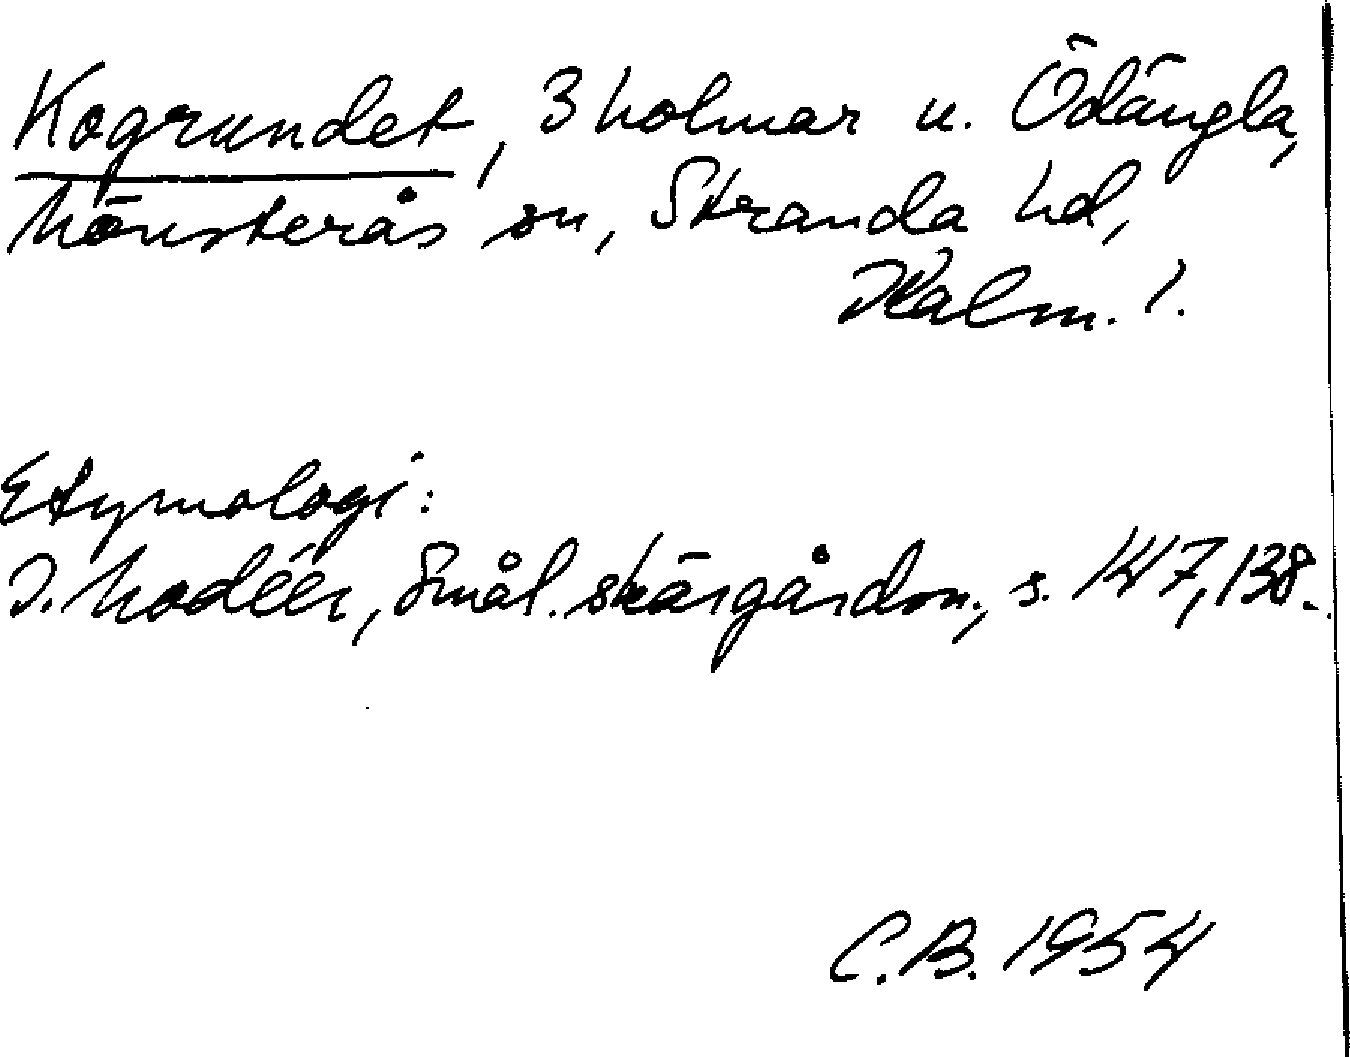 Kogrundet, 3 holmar u. Ödängla,
Mönsterås sn, Stranda hd,
Kalm. l.
Etymologi:
I. Modéer, Smål. skärgårdsn., s. 147, 138.
C.B. 1954